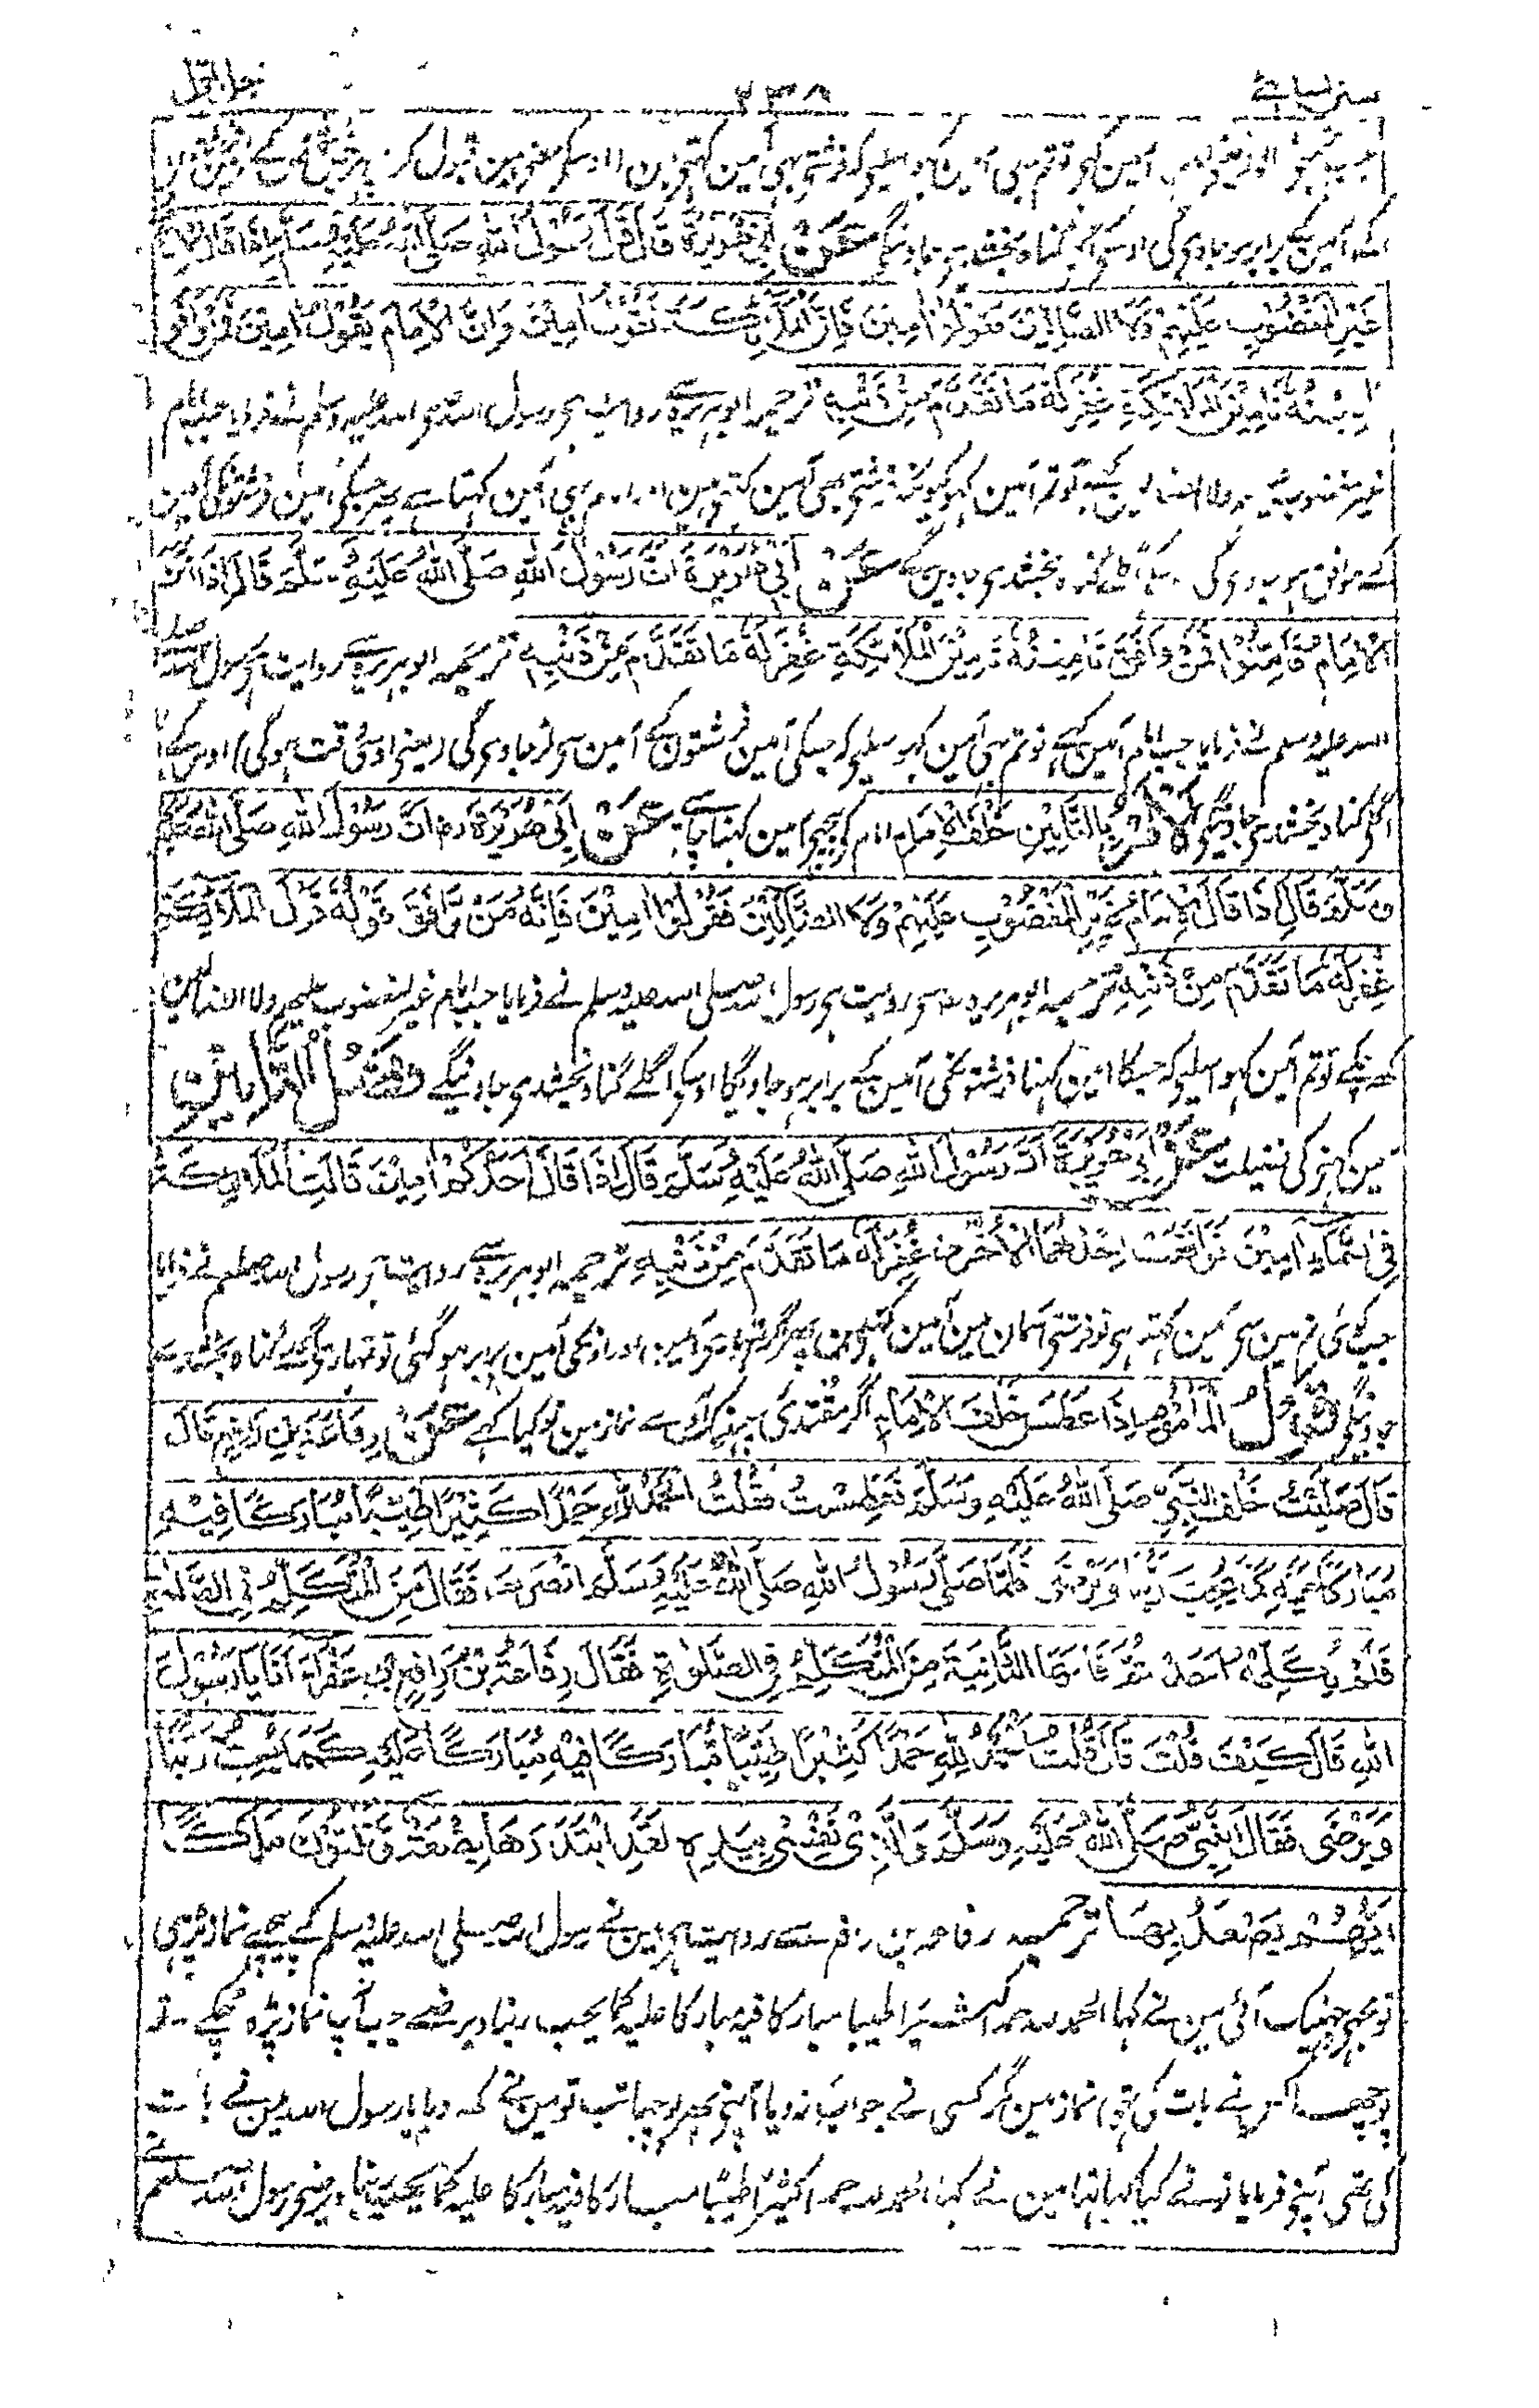 سنن نسائی ۲۳۸ جلد اول
آمین کہو تو تم بھی آمین کہو اسلیے کہ فرشتے بھی آمین کہتے ہین
برابر ہو جاوی گی اوسکے اگلے گناہ بخشدیے جاوینگے عَنْ أَبِي هُرَيْرَةَ قَالَ قَالَ رَسُوْلُ اللهِ صَلَّى اللهُ عَلَيْهِ وَسَلَّمَ إِذَا قَالَ الْإِمَامُ
غَيْرِ الْمَغْضُوْبِ عَلَيْهِمْ وَلَا الضَّالِّيْنَ فَقُوْلُوْا اٰمِيْنَ فَإِنَّ الْمَلَائِكَةَ تَقُوْلُ اٰمِيْنَ وَاِنَّ الْاِمَامَ يَقُوْلُ اٰمِيْنَ فَمَنْ وَافَقَ
تَأْمِيْنُهُ تَأْمِيْنَ الْمَلَائِكَةِ غُفِرَ لَهُ مَا تَقَدَّمَ مِنْ ذَنْبِهِ ترجمہ ابوہریرہ سے روایت ہی رسول اللہ صلی اللہ علیہ وسلم نے فرمایا جب امام
غیر المغضوب علیہم ولا الضالین کہے تو تم آمین کہو کیونکہ فرشتے بھی آمین کہتے ہین اور امام بھی آمین کہتا ہے پھر جسکی آمین فرشتونکی آمین
کے موافق ہو جاوی گی اگلے گناہ بخشدیے جاوین گے عَنْ أَبِيْ هُرَيْرَةَ أَنَّ رَسُوْلَ اللهِ صَلَّى اللهُ عَلَيْهِ وَسَلَّمَ قَالَ إِذَا أَمَّنَ
الْاِمَامُ فَاَمِّنُوْا فَمَنْ وَافَقَ تَأْمِيْنُهُ تَأْمِيْنَ الْمَلَائِكَةِ غُفِرَ لَهُ مَا تَقَدَّمَ مِنْ ذَنْبِهِ ترجمہ ابوہریرہ سے روایت ہی رسول اللہ صلی
اللہ علیہ وسلم نے فرمایا جب امام آمین کہے تو تم بھی آمین کہو اسلیے کہ جسکی آمین فرشتون کے آمین سے لڑ جاوی گی (یعنی اوسی وقت ہوگی) اوس کے
اگلے گناہ بخشدیے جاوینگے اَلْاَمْرُ بِالتَّأْمِيْنِ خَلْفَ الْاِمَامِ امام کے پیچھے آمین کہنا چاہیے عَنْ أَبِيْ هُرَيْرَةَ رض أَنَّ رَسُوْلَ اللهِ صَلَّى اللهُ عَلَيْهِ
وَسَلَّمَ قَالَ إِذَا قَالَ الْاِمَامُ غَيْرِ الْمَغْضُوْبِ عَلَيْهِمْ وَلَا الضَّالِّيْنَ فَقُوْلُوْا اٰمِيْنَ فَإِنَّهُ مَنْ وَّافَقَ قَوْلُهُ قَوْلَ الْمَلَائِكَةِ
غُفِرَ لَهُ مَا تَقَدَّمَ مِنْ ذَنْبِهِ ترجمہ ابوہریرہ رض سے روایت ہی رسول اللہ صلی اللہ علیہ وسلم نے فرمایا جب امام غیر المغضوب علیہم ولا الضالین
کہہ چکے تو تم آمین کہو اسلیے کہ جسکا آمین کہنا فرشتونکی آمین کے برابر ہو جاویگا اوسکے اگلے گناہ بخشدیے جاوینگے فَضْلُ التَّأْمِيْنِ
آمین کہنے کی فضیلت عَنْ أَبِيْ هُرَيْرَةَ أَنَّ رَسُوْلَ اللهِ صَلَّى اللهُ عَلَيْهِ وَسَلَّمَ قَالَ إِذَا قَالَ أَحَدُكُمْ اٰمِيْنَ قَالَتِ الْمَلَائِكَةُ
فِي السَّمَاءِ آمِيْنَ فَوَافَقَتْ إِحْدٰهُمَا الْأُخْرٰى غُفِرَ لَهُ مَا تَقَدَّمَ مِنْ ذَنْبِهِ ترجمہ ابوہریرہ سے روایت ہی رسول اللہ صلعم نے فرمایا
جب کوئی تم مین سے آمین کہتا ہی تو فرشتے آسمان مین آمین کہتے ہین پھر اگر تمہاری آمین اور اونکی آمین برابر ہو گئی تو تمہارے اگلے گناہ بخشدیے
جاوینگے قَوْلُ الْمَأْمُوْمِ إِذَا عَطَسَ خَلْفَ الْاِمَامِ اگر مقتدی چھینک آوے نماز مین تو کیا کہے عَنْ رِفَاعَةَ بْنِ رَافِعٍ قَالَ
قَالَ صَلَّيْتُ خَلْفَ النَّبِيِّ صَلَّى اللهُ عَلَيْهِ وَسَلَّمَ فَعَطَسْتُ فَقُلْتُ الْحَمْدُ لِلّٰهِ حَمْدًا كَثِيْرًا طَيِّبًا مُبَارَكًا فِيْهِ
مُبَارَكًا عَلَيْهِ كَمَا يُحِبُّ رَبُّنَا وَيَرْضٰى فَلَمَّا صَلَّى رَسُوْلُ اللهِ صَلَّى اللهُ عَلَيْهِ وَسَلَّمَ انْصَرَفَ فَقَالَ مَنِ الْمُتَكَلِّمُ فِي الصَّلٰوةِ
فَلَمْ يُكَلِّمْهُ أَحَدٌ ثُمَّ قَالَهَا الثَّانِيَةَ مَنِ الْمُتَكَلِّمُ فِي الصَّلٰوةِ فَقَالَ رِفَاعَةُ بْنُ رَافِعِ بْنِ عَفْرَاءَ اَنَا يَا رَسُوْلَ
اللهِ قَالَ كَيْفَ قُلْتَ قَالَ قُلْتُ الْحَمْدُ لِلّٰهِ حَمْدًا كَثِيْرًا طَيِّبًا مُّبَارَكًا فِيْهِ مُبَارَكًا عَلَيْهِ كَمَا يُحِبُّ رَبُّنَا
وَيَرْضٰى فَقَالَ النَّبِيُّ صَلَّى اللهُ عَلَيْهِ وَسَلَّمَ وَالَّذِيْ نَفْسِيْ بِيَدِهِ لَقَدِ ابْتَدَرَهَا بِضْعَةٌ وَّثَلٰثُوْنَ مَلَكًا
اَيُّهُمْ يَصْعَدُ بِهَا ترجمہ رفاعہ بن رافع سے روایت ہی مین نے رسول اللہ صلی اللہ علیہ وسلم کے پیچھے نماز پڑہی
تو مجھے چھینک آئی مین نے کہا الحمد للہ حمدا کثیرا طیبا مبارکا فیہ مبارکا علیہ کما یحب ربنا ویرضے جب آپ نماز پڑہ چکے تو
پوچھا کس نے بات کی تھی نماز مین مگر کسی نے جواب نہ دیا آپنے پھر پوچھا تب تو مین نے کہہ دیا یا رسول اللہ مین نے بات
کی تھی آپنے فرمایا تونے کیا کہا تھا مین نے کہا الحمد للہ حمدا کثیرا طیبا مبارکا فیہ مبارکا علیہ کما یحب ربنا ویرضے رسول اللہ صلعم نے